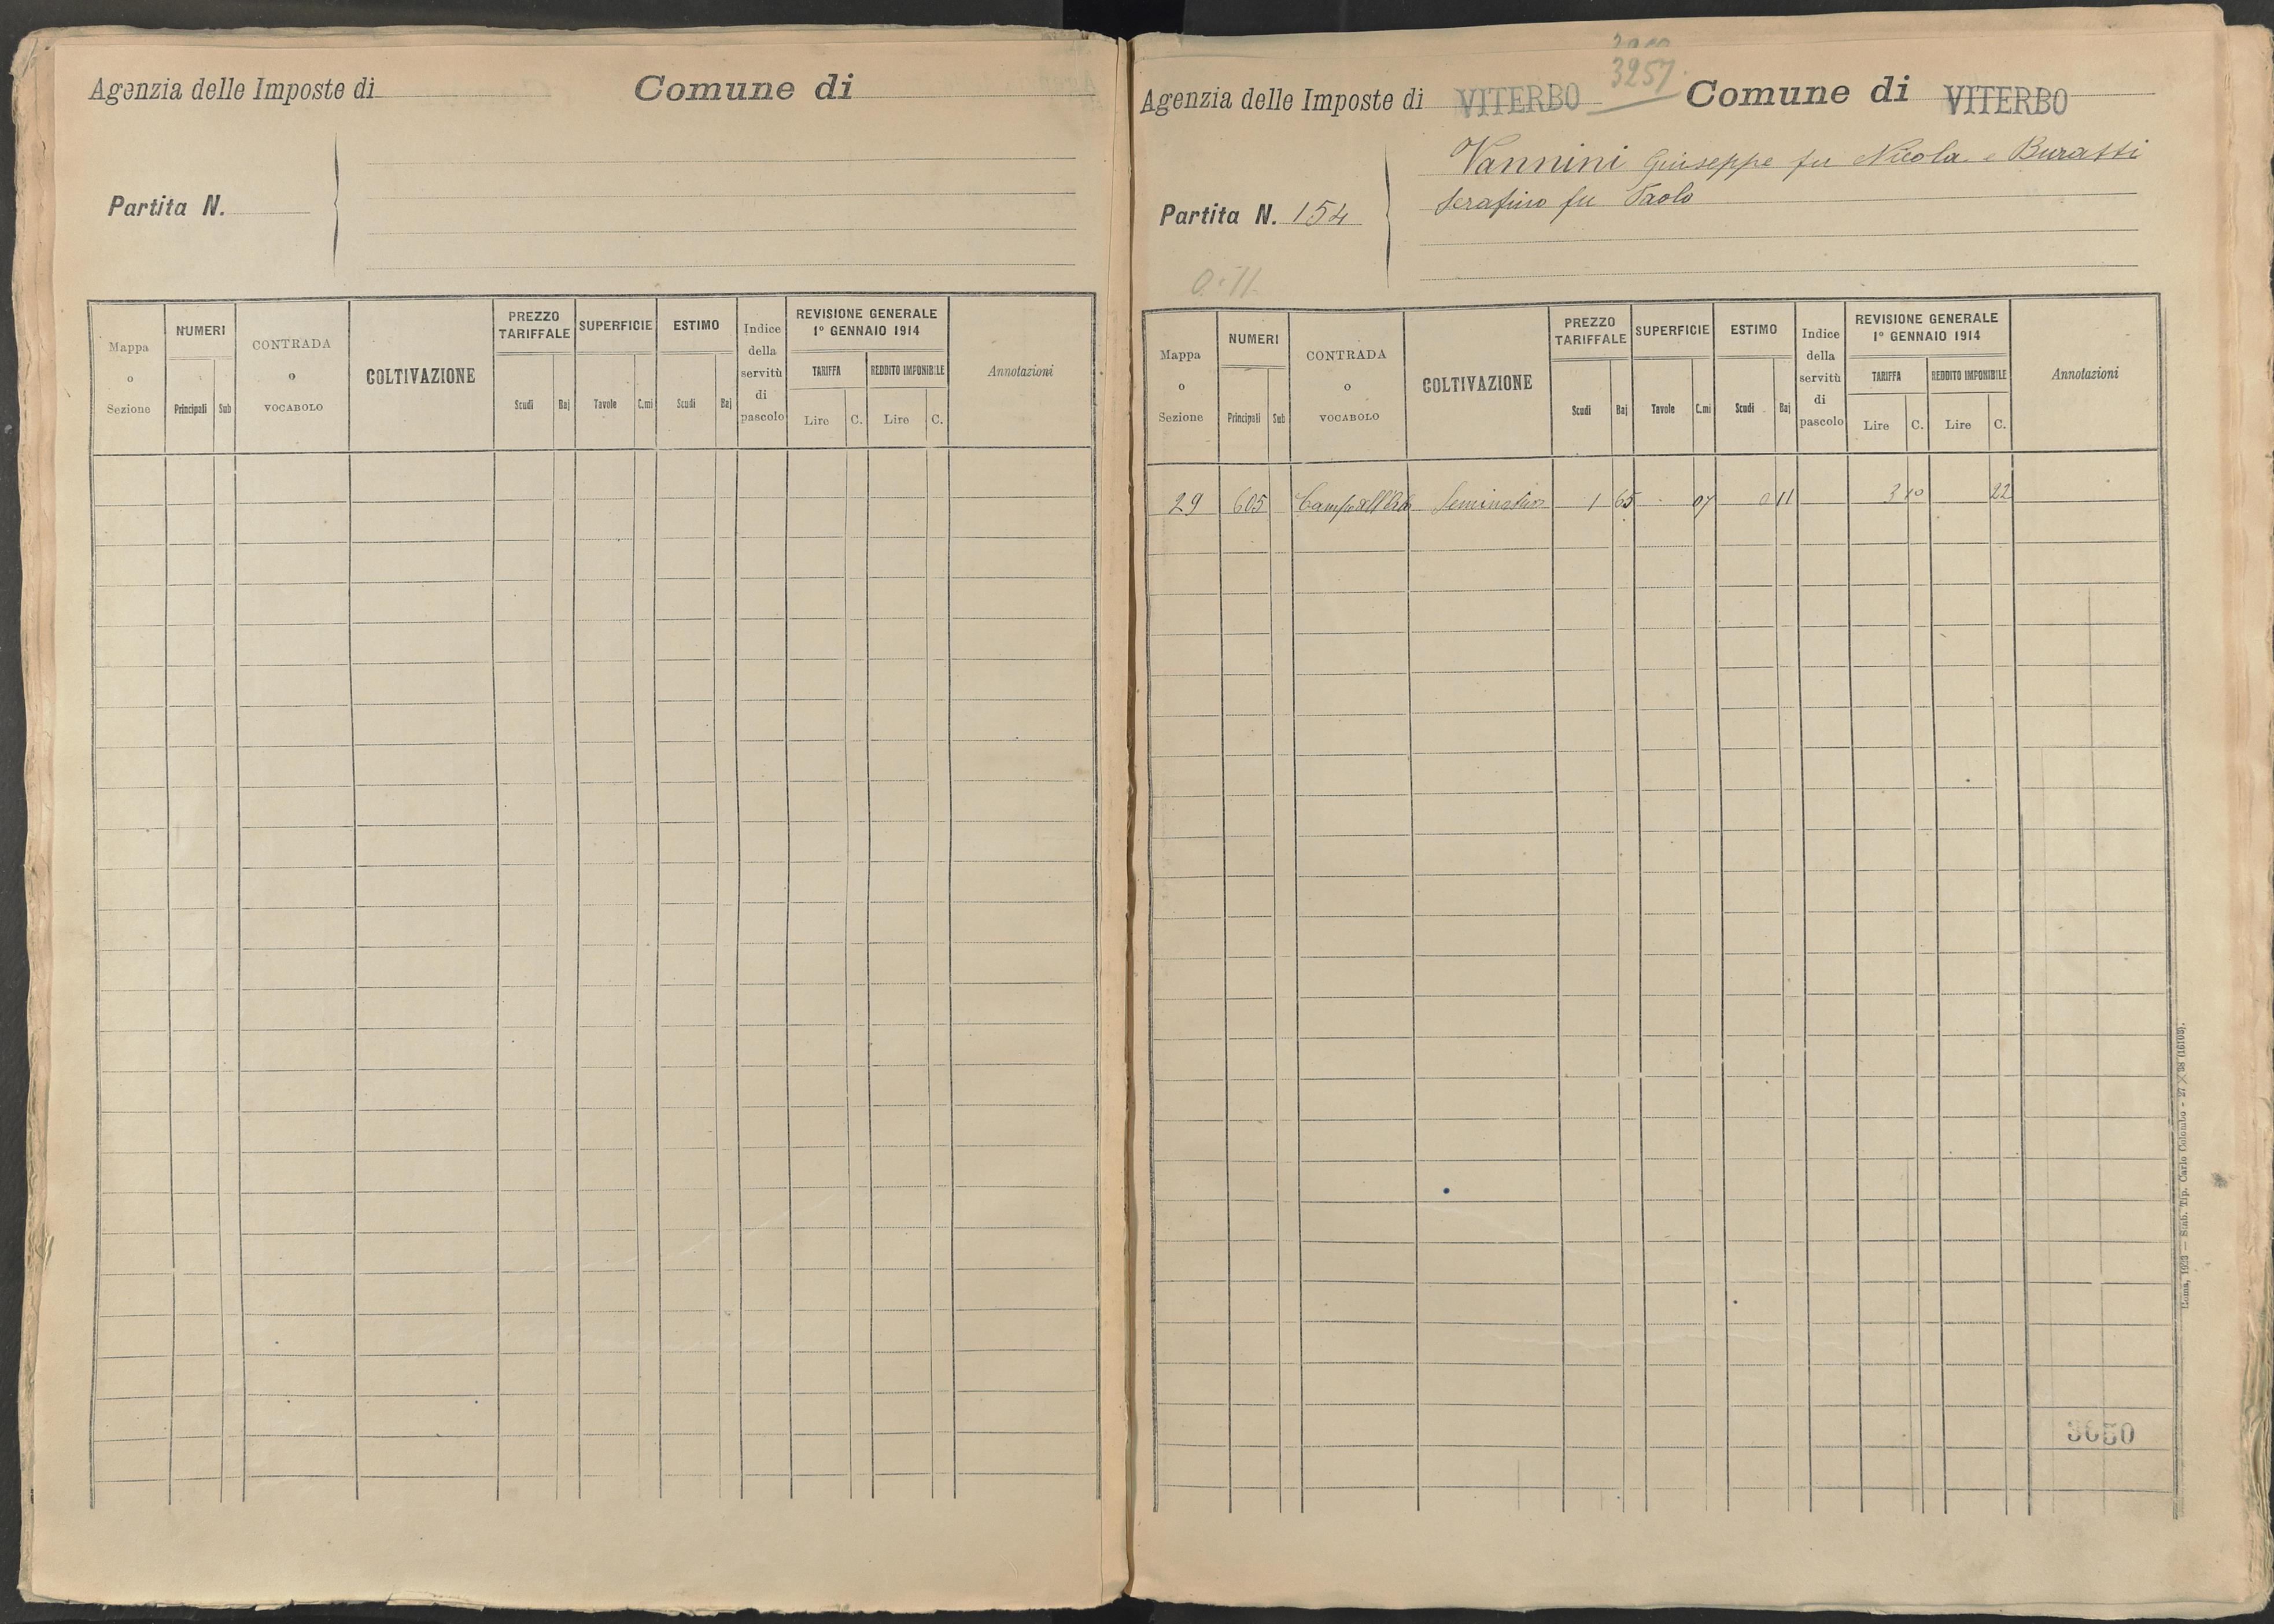 Agenzia delle Imposte di Comune di
Partita N.
Mappa o Sezione NUMERI Principali Sub CONTRADA o VOCABOLO COLTIVAZIONE PREZZO TARIFFALE Scudi Baj SUPERFICIE Tavole C.mi ESTIMO Scudi Baj Indice della servitù di pascolo REVISIONE GENERALE 1º GENNAIO 1914 TARIFFA Lire C. REDDITO IMPONIBILE Lire C. Annotazioni
3257
Agenzia delle Imposte di VITERBO Comune di VITERBO
Vannini Giuseppe fu Nicola e Buratti
Serafino fu Paolo
Partita N. 154
0.11
Mappa o Sezione NUMERI Principali Sub CONTRADA o VOCABOLO COLTIVAZIONE PREZZO TARIFFALE Scudi Baj SUPERFICIE Tavole C.mi ESTIMO Scudi Baj Indice della servitù di pascolo REVISIONE GENERALE 1º GENNAIO 1914 TARIFFA Lire C. REDDITO IMPONIBILE Lire C. Annotazioni
29 605 Seminativo 1 65 07 0 11 3 10 22
3650
Roma, 1923 — Stab. Tip. Carlo Colombo - 27 × 38 (16105).